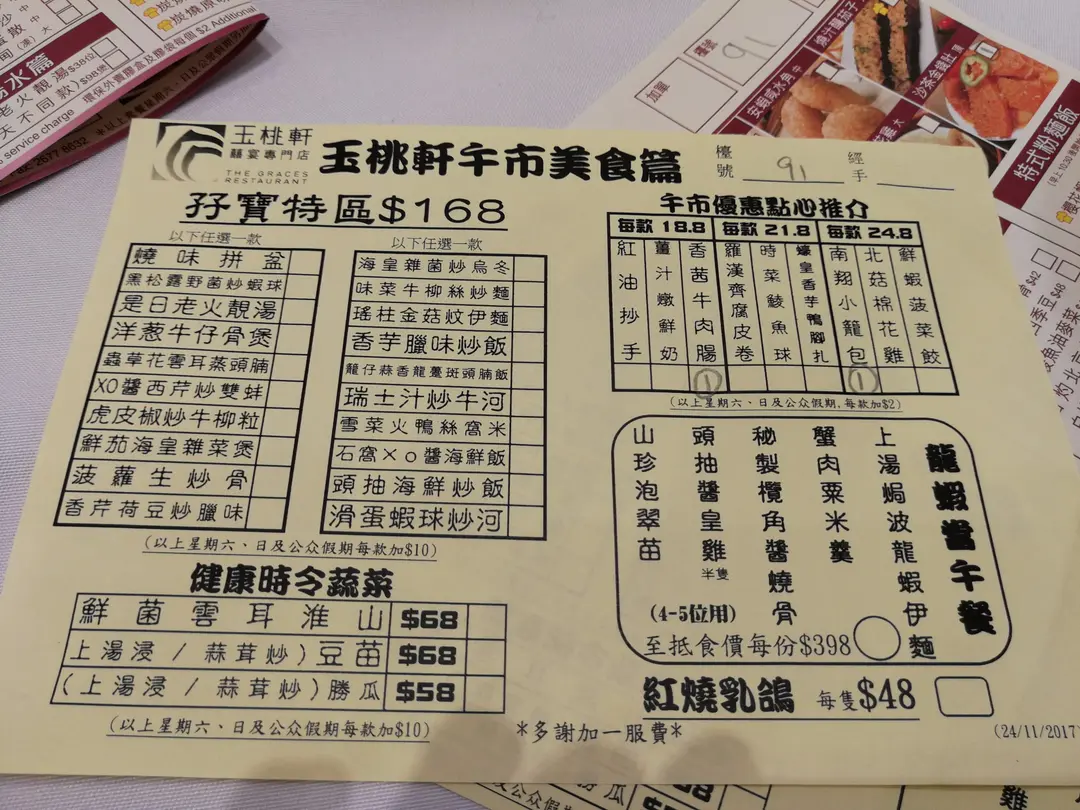 玉桃軒
囍宴專門店
THE GRACES
RESTAURANT
玉桃軒午市美食篇
檯號 91
經手
孖寶特區$168
以下任選一款
燒味拼盆
黑松露野菌炒蝦球
是日老火靚湯
洋葱牛仔骨煲
蟲草花雲耳蒸頭腩
XO醬西芹炒雙蚌
虎皮椒炒牛柳粒
鮮茄海皇雜菜煲
菠蘿生炒骨
香芹荷豆炒臘味
以下任選一款
海皇雜菌炒烏冬
味菜牛柳絲炒麵
瑤柱金菇炆伊麵
香芋臘味炒飯
籠仔蒜香龍躉斑頭腩飯
瑞士汁炒牛河
雪菜火鴨絲窩米
石窩XO醬海鮮飯
頭抽海鮮炒飯
滑蛋蝦球炒河
(以上星期六、日及公众假期每款加$10)
健康時令蔬菜
鮮菌雲耳淮山 $68
上湯浸 / 蒜茸炒)豆苗 $68
(上湯浸 / 蒜茸炒)勝瓜 $58
(以上星期六、日及公众假期每款加$10)
午市優惠點心推介
每款 18.8
每款 21.8
每款 24.8
紅油抄手
薑汁嫩鮮奶
香茜牛肉腸 1
羅漢齊腐皮卷
時菜鯪魚球
蠔皇香芋鴨腳扎
南翔小籠包 1
北菇棉花雞
鮮蝦菠菜餃
(以上星期六、日及公众假期,每款加$2)
龍蝦當午餐
上湯焗波龍蝦伊麵
蟹肉粟米羹
秘製欖角醬燒骨
頭抽醬皇雞
半隻
山珍泡翠苗
(4-5位用)
至抵食價每份$398
紅燒乳鴿 每隻$48
*多謝加一服費*
(24/11/2017)
加單
檯號 91
燒汁釀茄子
安蝦咸水角 中
沙茶金錢肚
特式粉麵飯
service charge
環保外賣膠盒及膠袋每個 $2 Additional
2677 8632